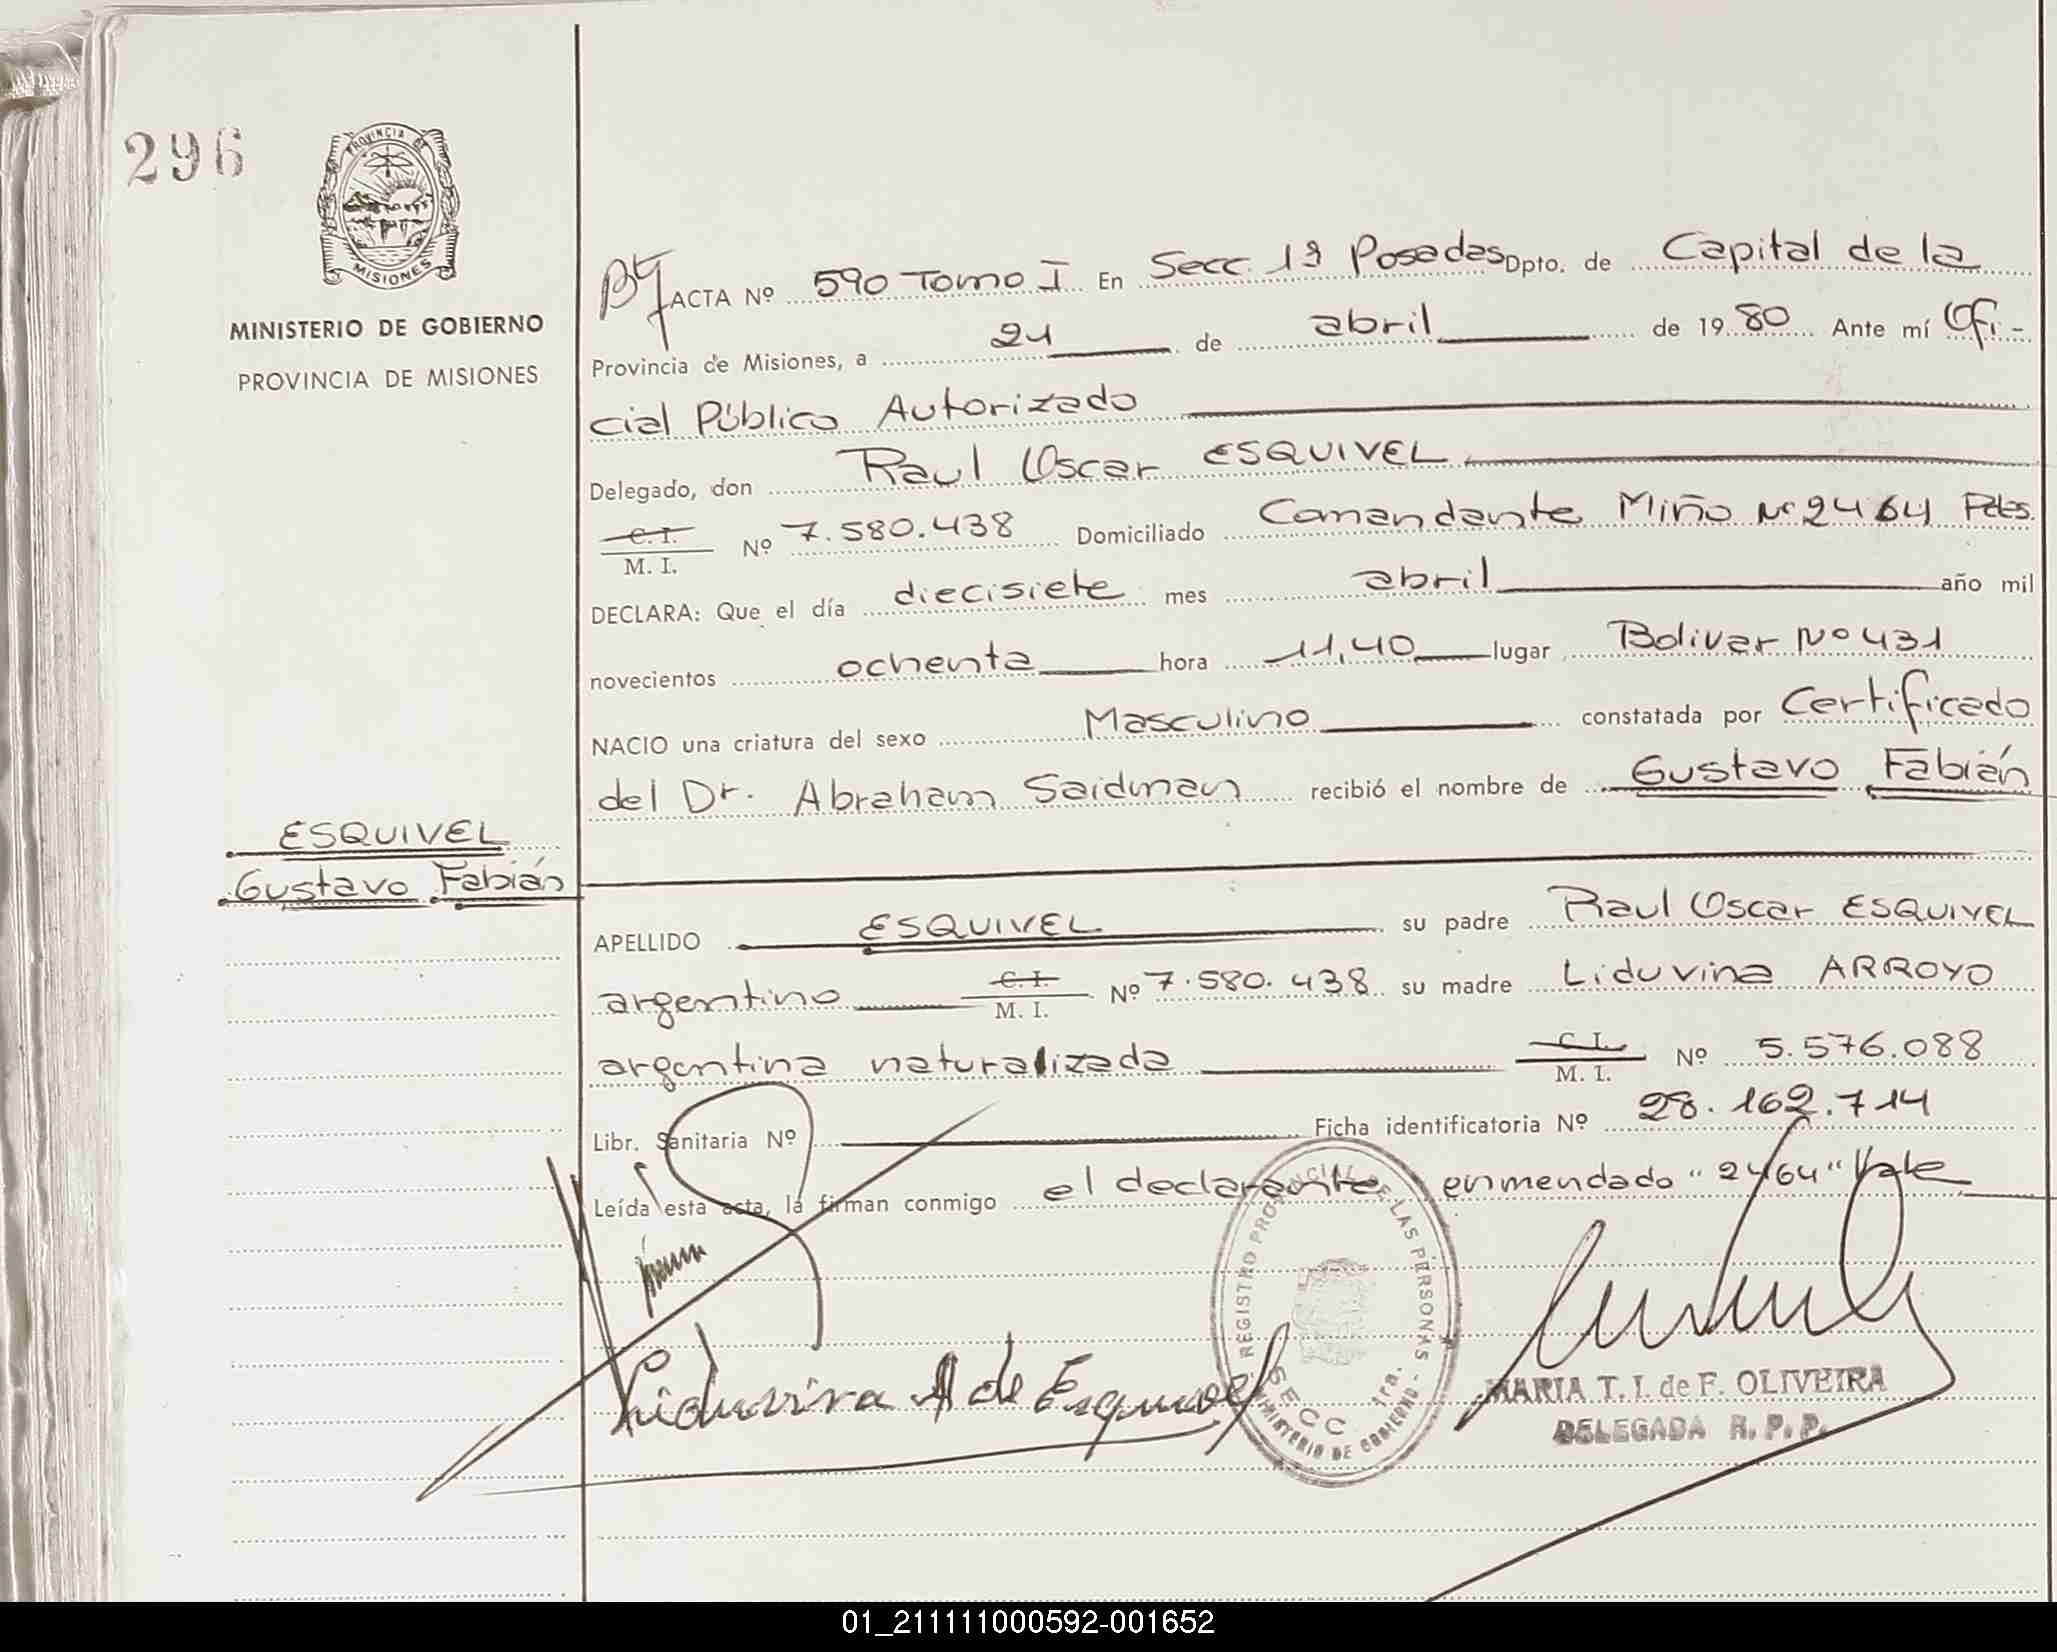 296
PROVINCIA DE
MISIONES
MINISTERIO DE GOBIERNO
PROVINCIA DE MISIONES
ACTA Nº 590 Tomo I En Secc. 1ª Posadas Dpto. de Capital de la
Provincia de Misiones, a 21 de abril de 1980 Ante mí Ofi-
cial Público Autorizado
Delegado, don Raul Oscar ESQUIVEL
C. I.
M. I. Nº 7.580.438 Domiciliado Comandante Miño Nº 2464 Pdas.
DECLARA: Que el día diecisiete mes abril año mil
novecientos ochenta hora 11,40 lugar Bolivar Nº 431
NACIO una criatura del sexo Masculino constatada por Certificado
del Dr. Abraham Saidman recibió el nombre de Gustavo Fabián
ESQUIVEL
Gustavo Fabián
APELLIDO ESQUIVEL su padre Raul Oscar ESQUIVEL
argentino C. I. M. I. Nº 7.580.438 su madre Liduvina ARROYO
argentina naturalizada C. I. M. I. Nº 5.576.088
Libr. Sanitaria Nº Ficha identificatoria Nº 28.162.714
Leída esta acta, la firman conmigo el declarante enmendado "2464" Vale
Liduvina A de Esquivel
REGISTRO PROVINCIAL DE LAS PERSONAS
SECC. 1ra.
MINISTERIO DE GOBIERNO
MARIA T. I. de F. OLIVEIRA
DELEGADA R. P. P.
01_211111000592-001652